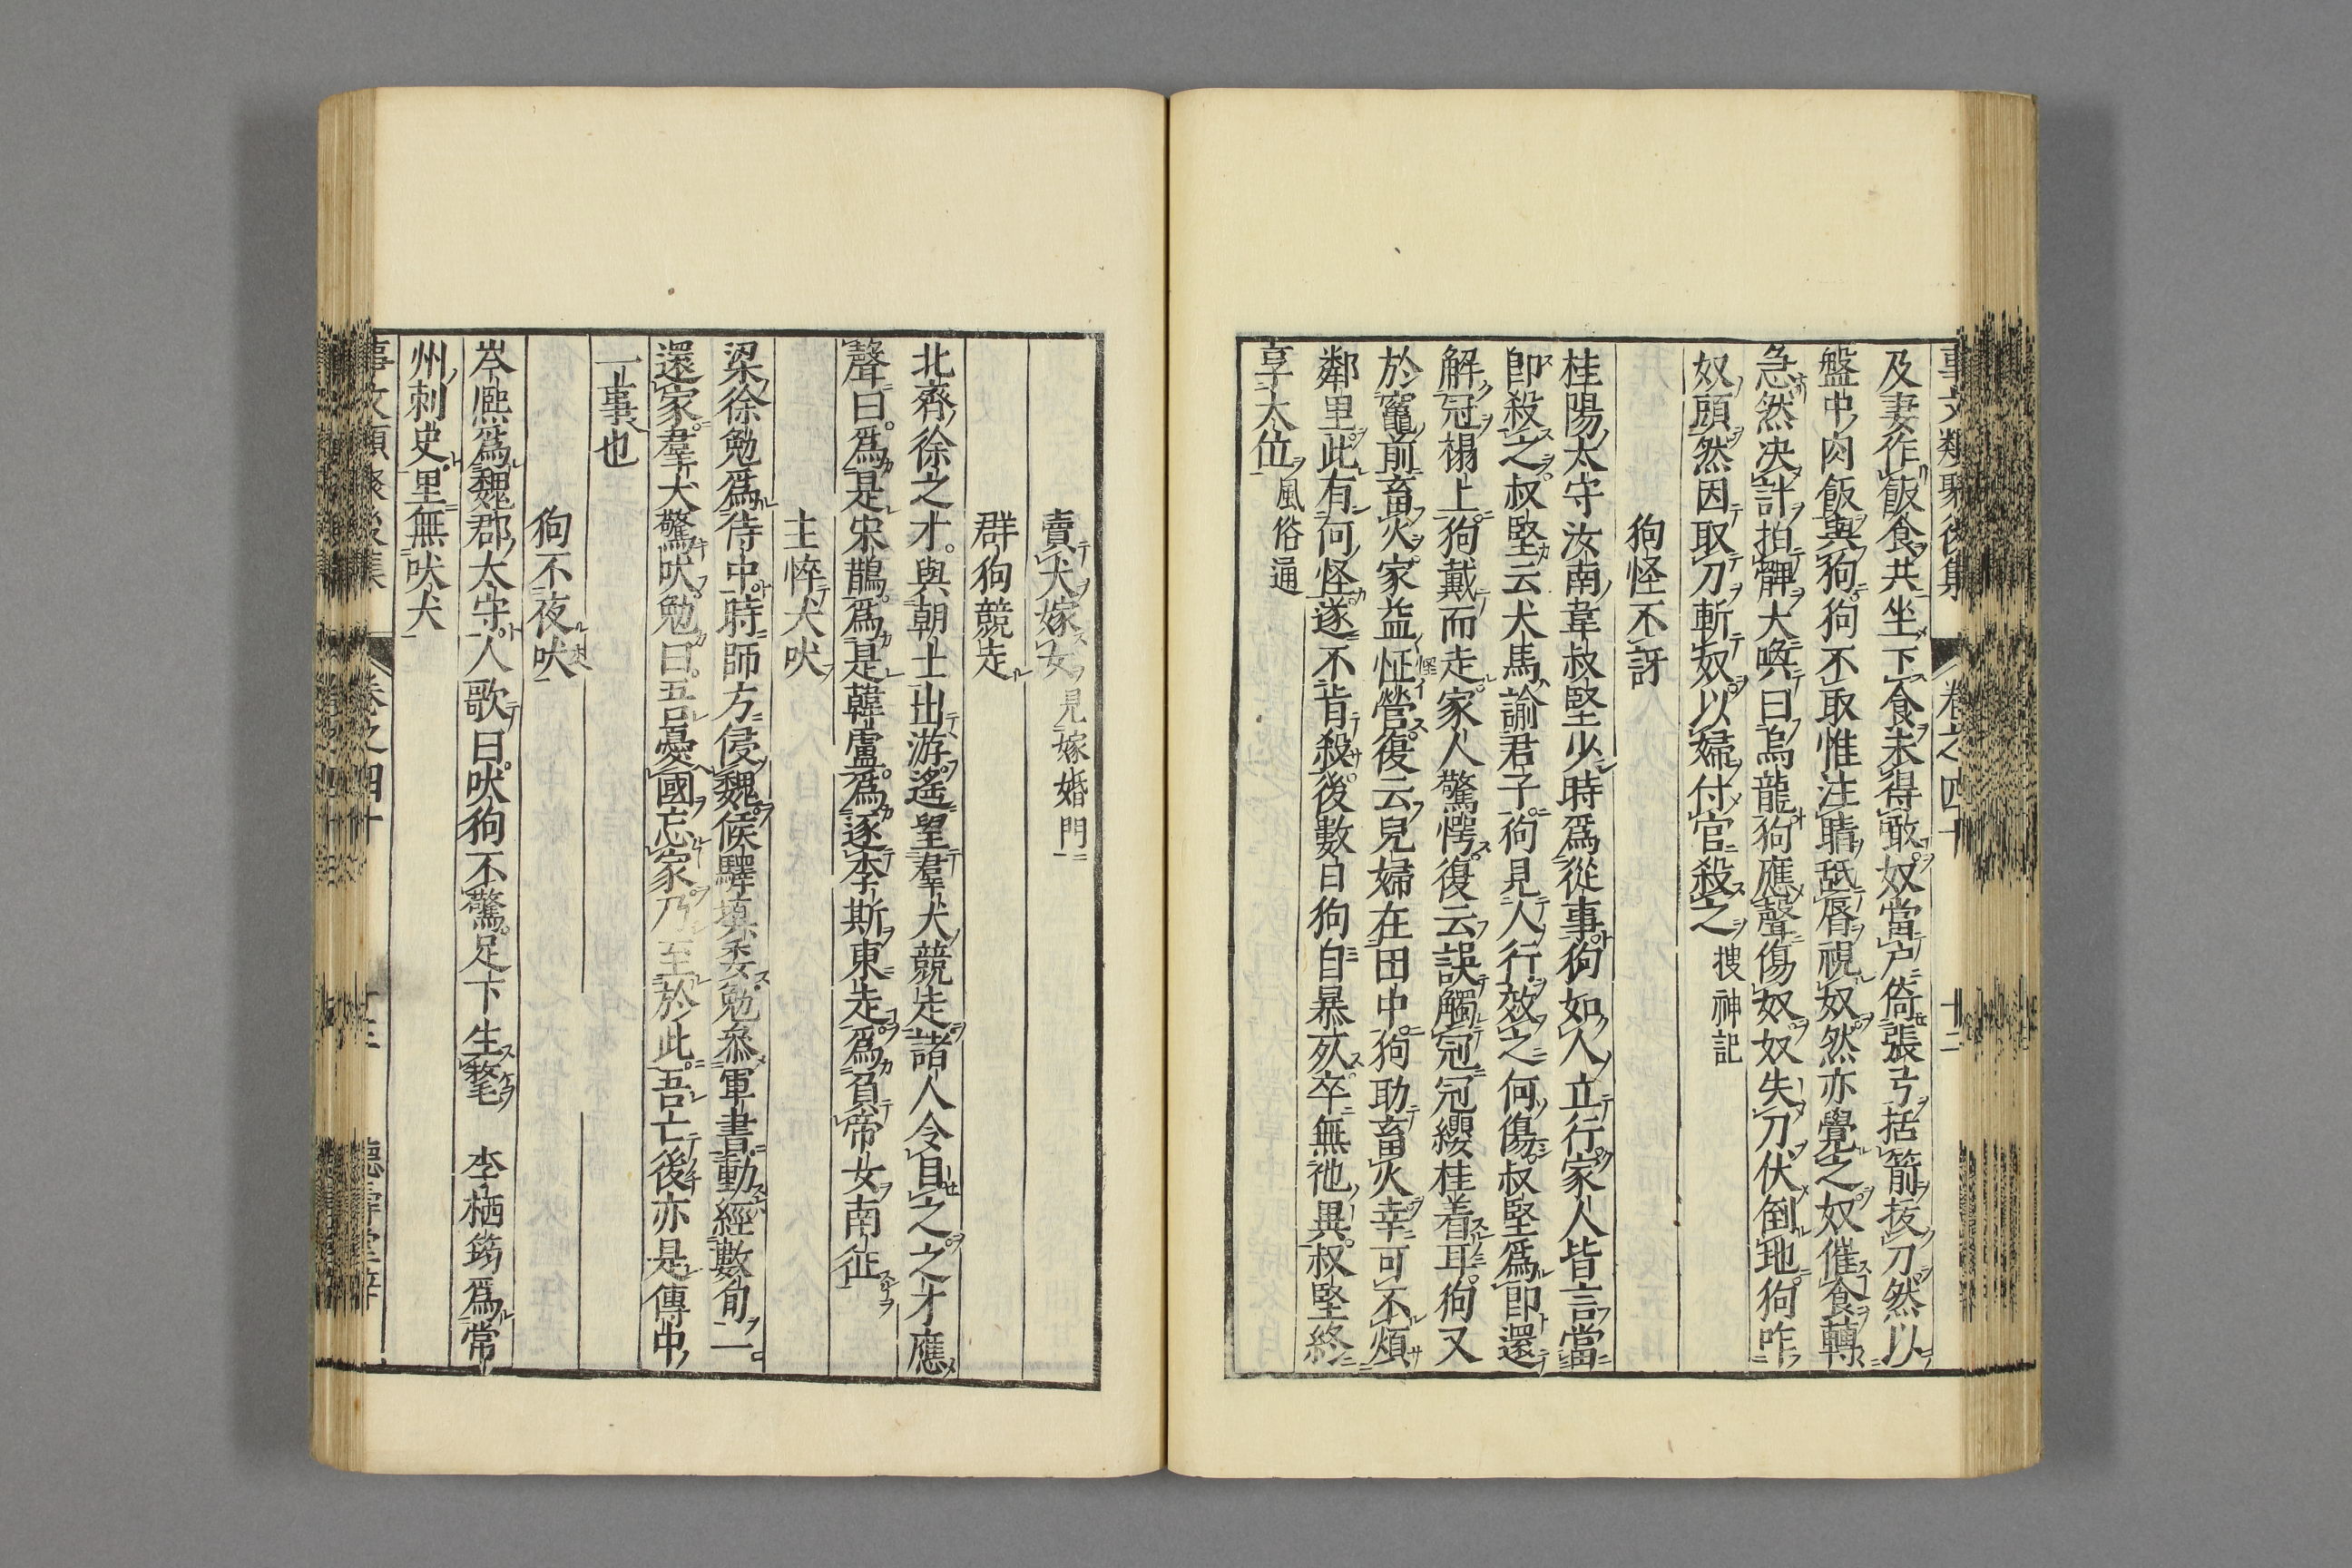 事文類聚後集 卷之四十 十二
及妻作飯食共坐下食未得敢奴當户倚張弓括箭拔刀然以
盤中肉飯與狗狗不取惟注睛舐唇視奴然亦覺之奴催食轉
急然决計拍髀大喚曰烏龍狗應聲傷奴奴失刀伏倒地狗咋
奴頭然因取刀斬奴以婦付官殺之 搜神記
狗怪不訝
桂陽太守汝南韋叔堅少時爲從事狗如人立行家人皆言當
即殺之叔堅云犬馬諭君子狗見人行效之何傷叔堅爲即還
解冠榻上狗戴而走家人驚愕復云誤觸冠冠纓桂着耳狗又
於竈前畜火家益怔營復云兒婦在田中狗助畜火幸可不煩
鄰里此有何怪遂不肯殺後數日狗自暴死卒無祂異叔堅終
享太位 風俗通
賣犬嫁女 見嫁婚門
群狗競走
北齊徐之才與朝士出游遙望羣犬競走諸人令目之之才應
聲曰爲是宋鵲爲是韓盧爲逐李斯東走爲負帝女南征
主悴犬吠
梁徐勉爲侍中時師方侵魏候驛填委勉參軍書動經數旬一
還家羣犬驚吠勉曰吾憂國忘家乃至於此吾亡後亦是傳中
一事也
狗不夜吠
岑熙爲魏郡太守人歌曰吠狗不驚足下生氂 李栖筠爲常
州刺史里無吠犬
事文類聚後集 卷之四十 十三